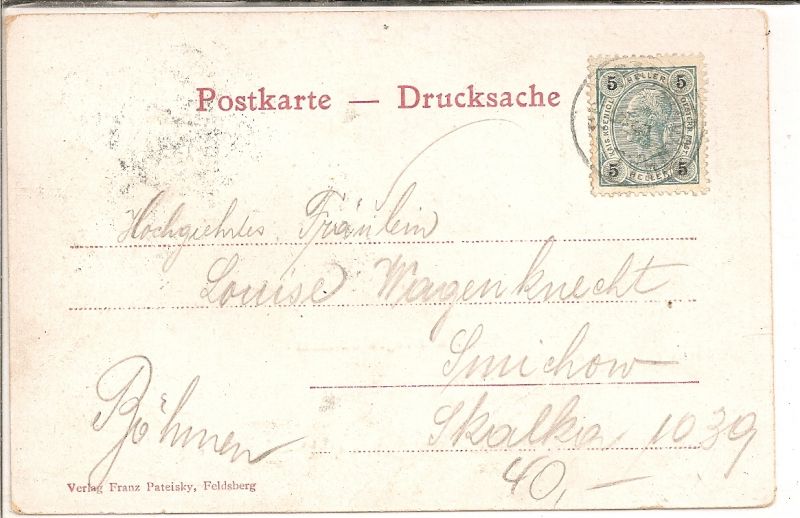 Postkarte — Drucksache
5 HELLER 5
5 HELLER 5
Hochgeehrtes Fräulein
Louise Wagenknecht
Smichow
Böhmen
Skalka 1039
40,—
Verlag Franz Pateisky, Feldsberg